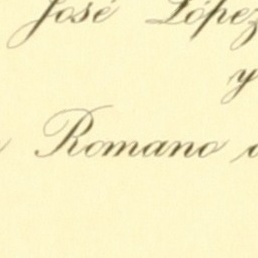 José López
y
Romano